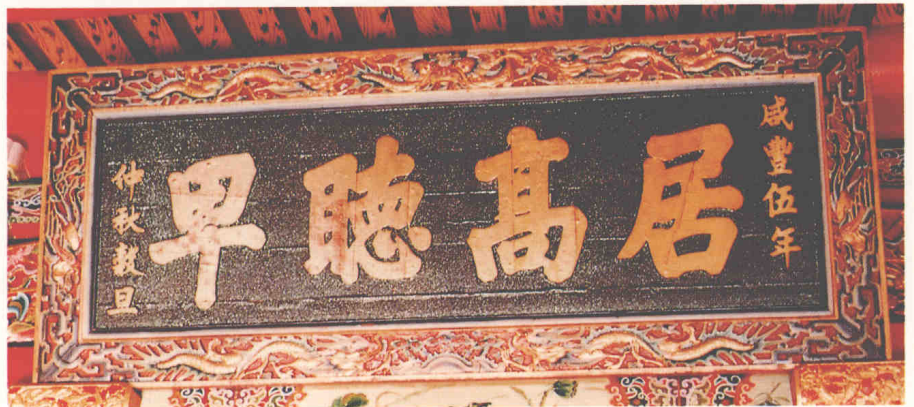 咸豐伍年
居髙聽卑
仲秋穀旦